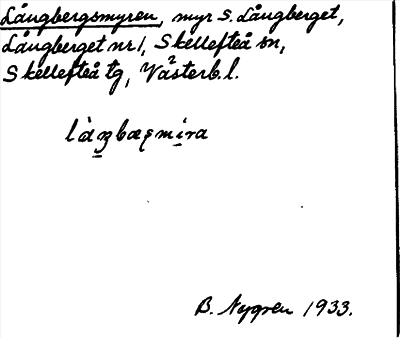 Långbergsmyren, myr S. Långberget,
Långberget nr 1, Skellefteå sn,
Skellefteå tg, Västerb. l.
B. Nygren 1933.